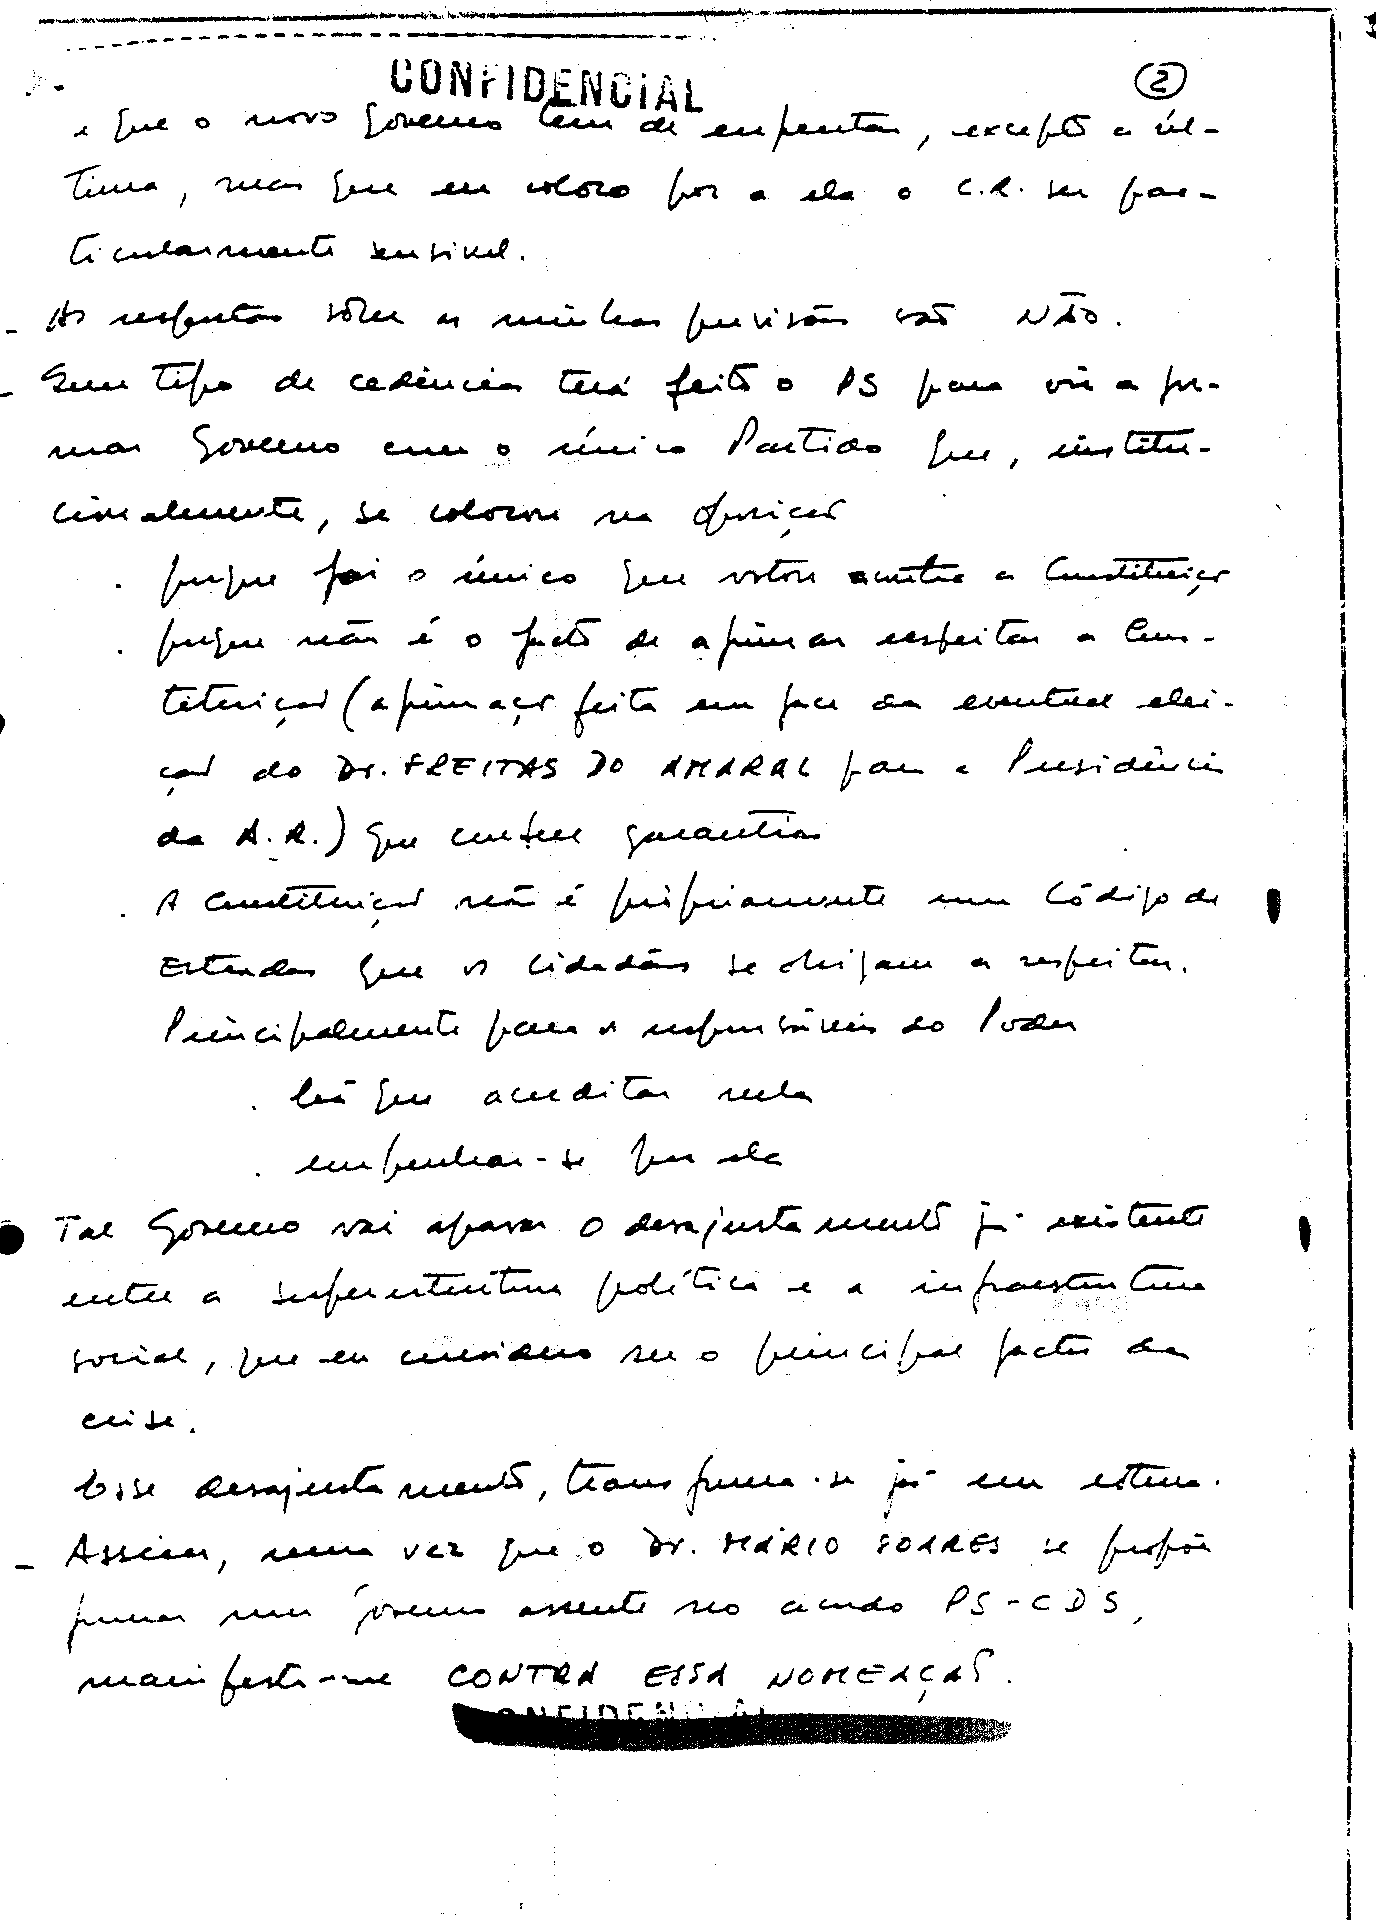 CONFIDENCIAL
2
e que o novo Governo tem de enfrentar, excepto a úl-
tima, mas que eu coloco por a ela o C.R. ser par-
ticularmente sensível.
- As respostas sobre as minhas previsões são NÃO.
- Que tipo de cedências terá feito o PS para vir a for-
mar Governo com o único Partido que, institu-
cionalmente, se colocou na oposição
. porque foi o único que votou contra a Constituição
. porque não é o facto de afirmar respeitar a Cons-
tituição (afirmação feita em face da eventual elei-
ção do Dr. FREITAS DO AMARAL para a Presidência
da A.R.) que confere garantias
. A Constituição não é propriamente um Código da
Estrada que os cidadãos se obrigam a respeitar.
Principalmente para os responsáveis do Poder
. há que acreditar nela
. empenhar-se por ela
Tal Governo vai agravar o desajustamento já existente
entre a superestrutura política e a infraestrutura
social, que eu considero ser o principal factor da
crise.
Esse desajustamento, transforma-se já em
- Assim, uma vez que o Dr. MÁRIO SOARES se propõe
formar um governo assente no acordo PS-CDS,
manifesto-me CONTRA ESSA NOMEAÇÃO.
CONFIDENCIAL